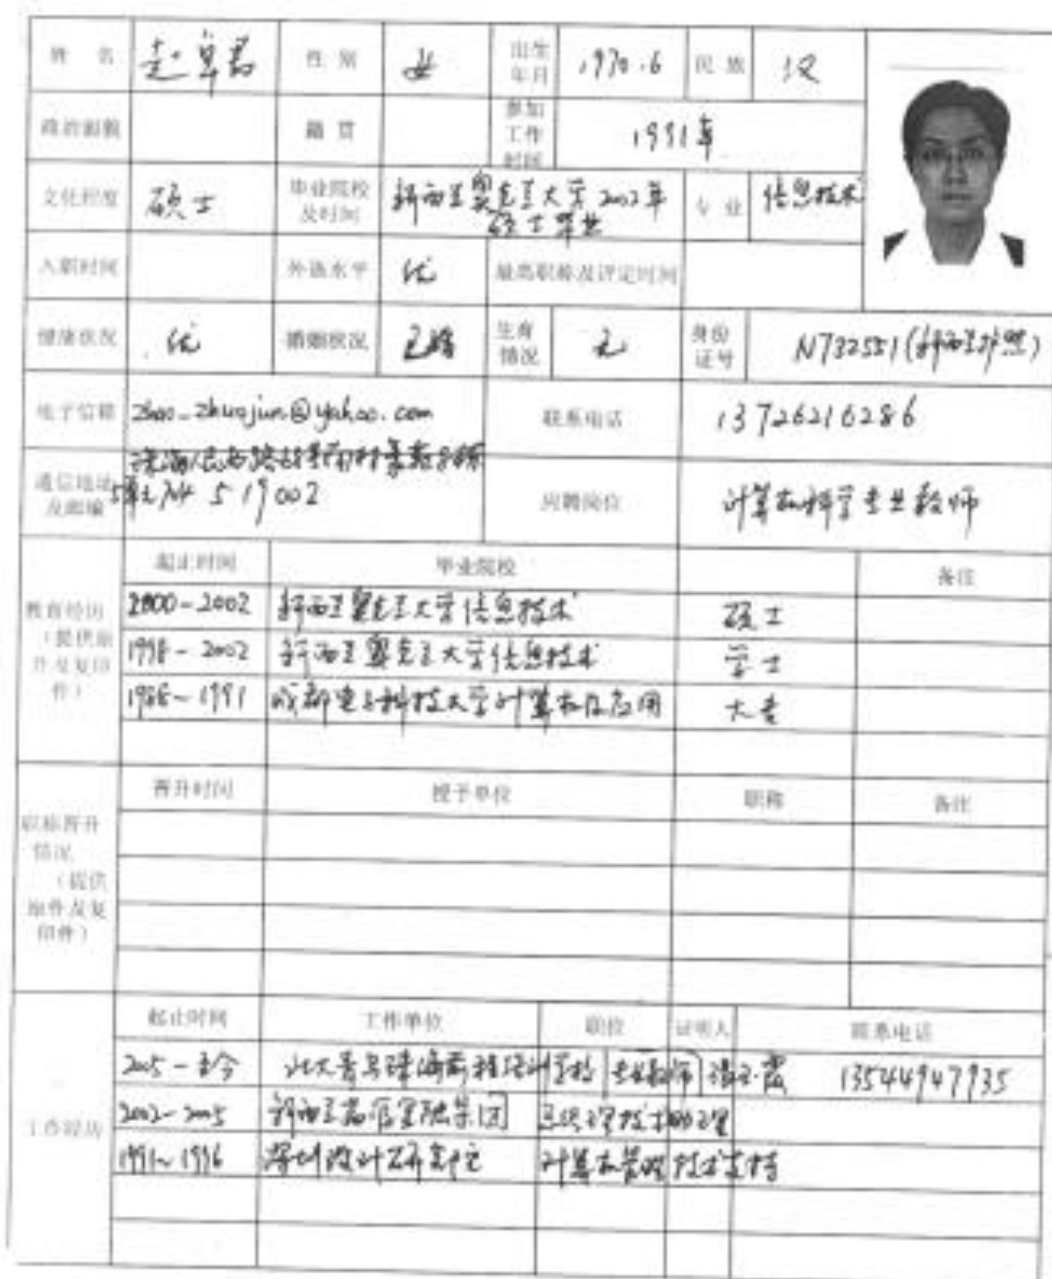 姓 名 赵卓君 性 别 女 出生年月 1970.6 民 族 汉
政治面貌 籍 贯 参加工作时间 1991年
文化程度 硕士 毕业院校及时间 新西兰奥克兰大学2002年硕士毕业 专 业 信息技术
入职时间 外语水平 优 最高职称及评定时间
健康状况 优 婚姻状况 已婚 生育情况 无 身份证号 N732551(新西兰护照)
电子信箱 zhao_zhuojun@yahoo.com 联系电话 13726216286
通信地址及邮编 珠海人民西路 519002 应聘岗位 计算机科学专业教师
起止时间 毕业院校 备注
教育经历(提供原件及复印件)
2000-2002 新西兰奥克兰大学信息技术 硕士
1998-2002 新西兰奥克兰大学信息技术 学士
1988-1991 成都电子科技大学计算机及应用 大专
晋升时间 授予单位 职称 备注
职称晋升情况(提供原件及复印件)
起止时间 工作单位 职位 证明人 联系电话
工作经历
2005-至今 北大青鸟珠海前程培训学校 专业教师 13544947935
2002-2005 新西兰 金融集团 技术助理
1991~1996 设计研究院 计算机管理技术支持